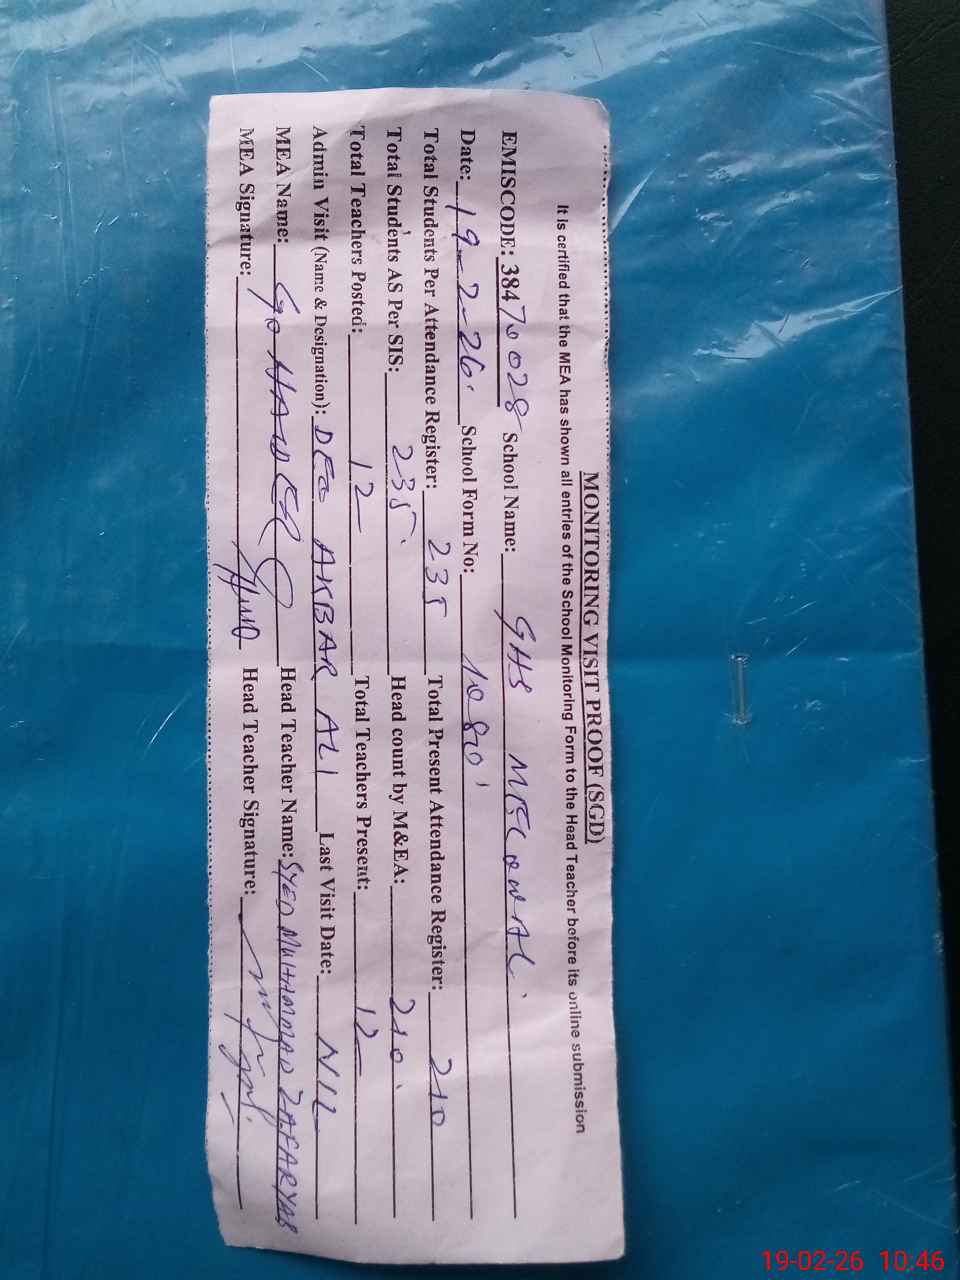 MONITORING VISIT PROOF (SGD)
It is certified that the MEA has shown all entries of the School Monitoring Form to the Head Teacher before its online submission
EMISCODE: 38470028 School Name: GHS MECOWAL
Date: 19-2-26 School Form No: 1080
Total Students Per Attendance Register: 235 Total Present Attendance Register: 210
Total Students AS Per SIS: 235 Head count by M&EA: 210
Total Teachers Posted: 12 Total Teachers Present: 12
Admin Visit (Name & Designation): DEO AKBAR ALI Last Visit Date: NIL
MEA Name: HAIDER Head Teacher Name: SYED MUHAMMAD ZAFARYAB
MEA Signature: Head Teacher Signature:
19-02-26 10:46